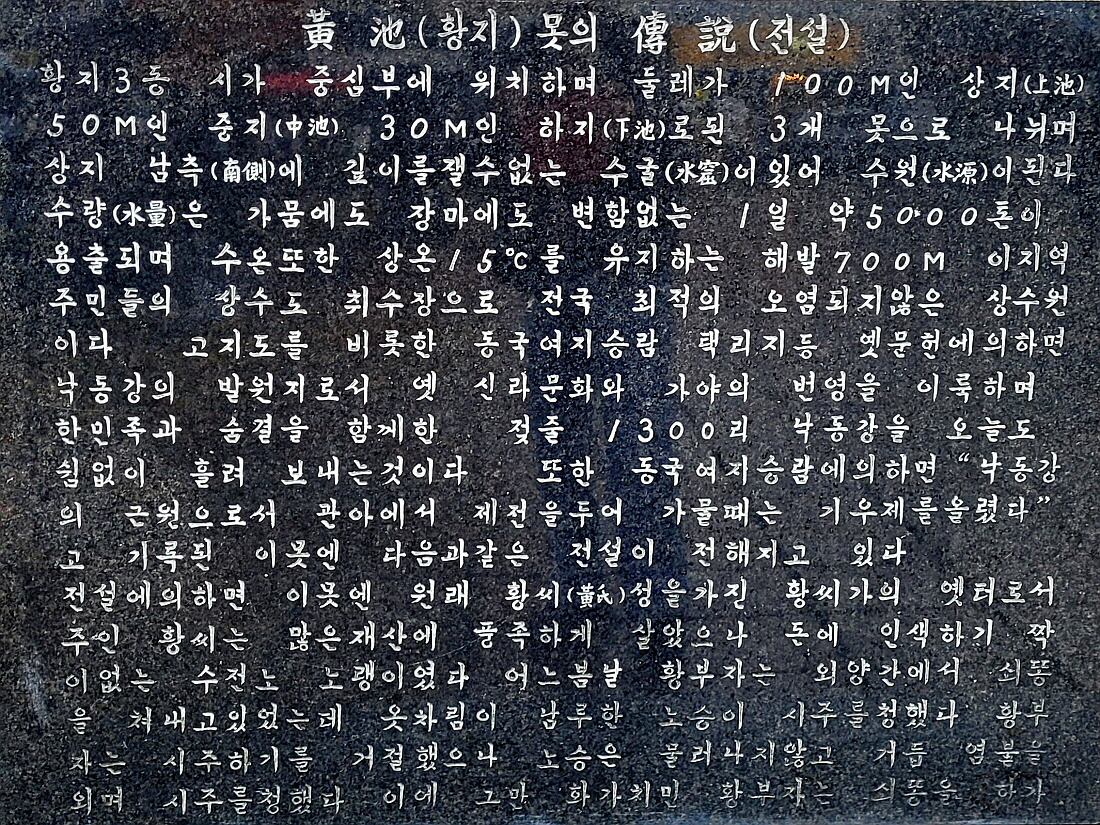 黃 池(황지)못의 傳 說(전설)
황지3동 시가 중심부에 위치하며 둘레가 100M인 상지(上池)
50M인 중지(中池) 30M인 하지(下池)로된 3개 못으로 나뉘며
상지 남측(南側)에 깊이를잴수없는 수굴(水窟)이있어 수원(水源)이된다
수량(水量)은 가뭄에도 장마에도 변함없는 1일 약5000톤이
용출되며 수온또한 상온15℃를 유지하는 해발700M 이지역
주민들의 상수도 취수장으로 전국 최적의 오염되지않은 상수원
이다 고지도를 비롯한 동국여지승람 택리지등 옛문헌에의하면
낙동강의 발원지로서 옛 신라문화와 가야의 번영을 이룩하며
한민족과 숨결을 함께한 젖줄 1300리 낙동강을 오늘도
쉴없이 흘려 보내는것이다 또한 동국여지승람에의하면 “낙동강
의 근원으로서 관아에서 제전을두어 가물때는 기우제를올렸다”
고 기록된 이못엔 다음과같은 전설이 전해지고 있다
전설에의하면 이못엔 원래 황씨(黃氏)성을가진 황씨가의 옛터로서
주인 황씨는 많은재산에 풍족하게 살았으나 돈에 인색하기 짝
이없는 수전노 노랭이였다 어느봄날 황부자는 외양간에서 쇠똥
을 쳐내고있었는데 옷차림이 남루한 노승이 시주를청했다 황부
자는 시주하기를 거절했으나 노승은 물러나지않고 거듭 염불을
외며 시주를청했다 이에 그만 화가치민 황부자는 쇠똥을 하가